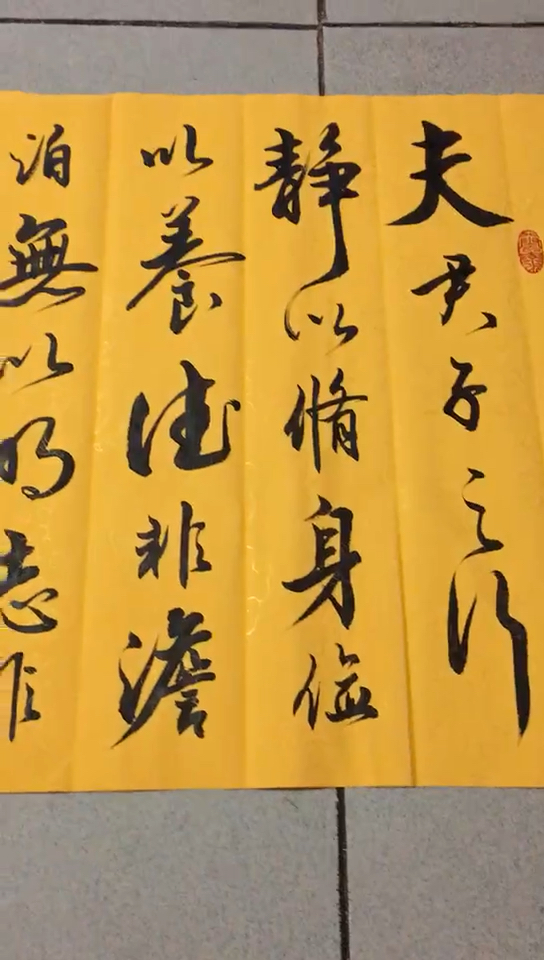 夫君子之行
静以脩身俭
以養德非澹
泊無以明志非